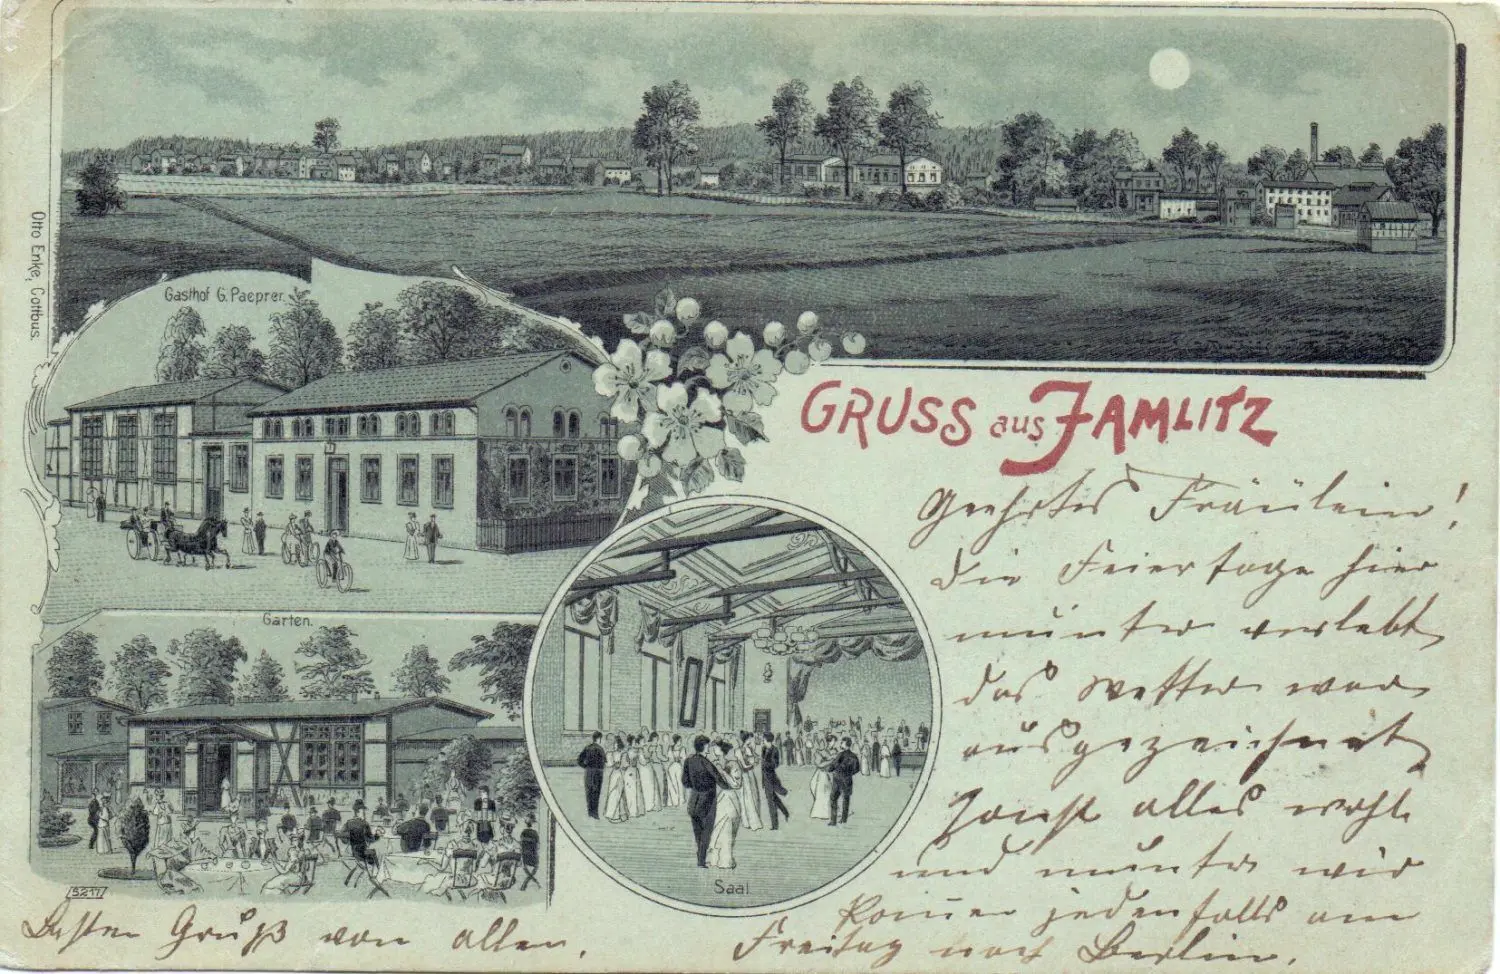 Otto Enke, Cottbus.
Gasthof G. Paeprer.
GRUSS aus JAMLITZ
Geehrtes Fräulein!
Die Feiertage hier
munter verlebt,
das Wetter war
ausgezeichnet
sonst alles wohl
und munter wir
kommen jedenfalls am
Freitag nach Berlin.
Garten.
Saal
5217
Besten Gruß von allen.